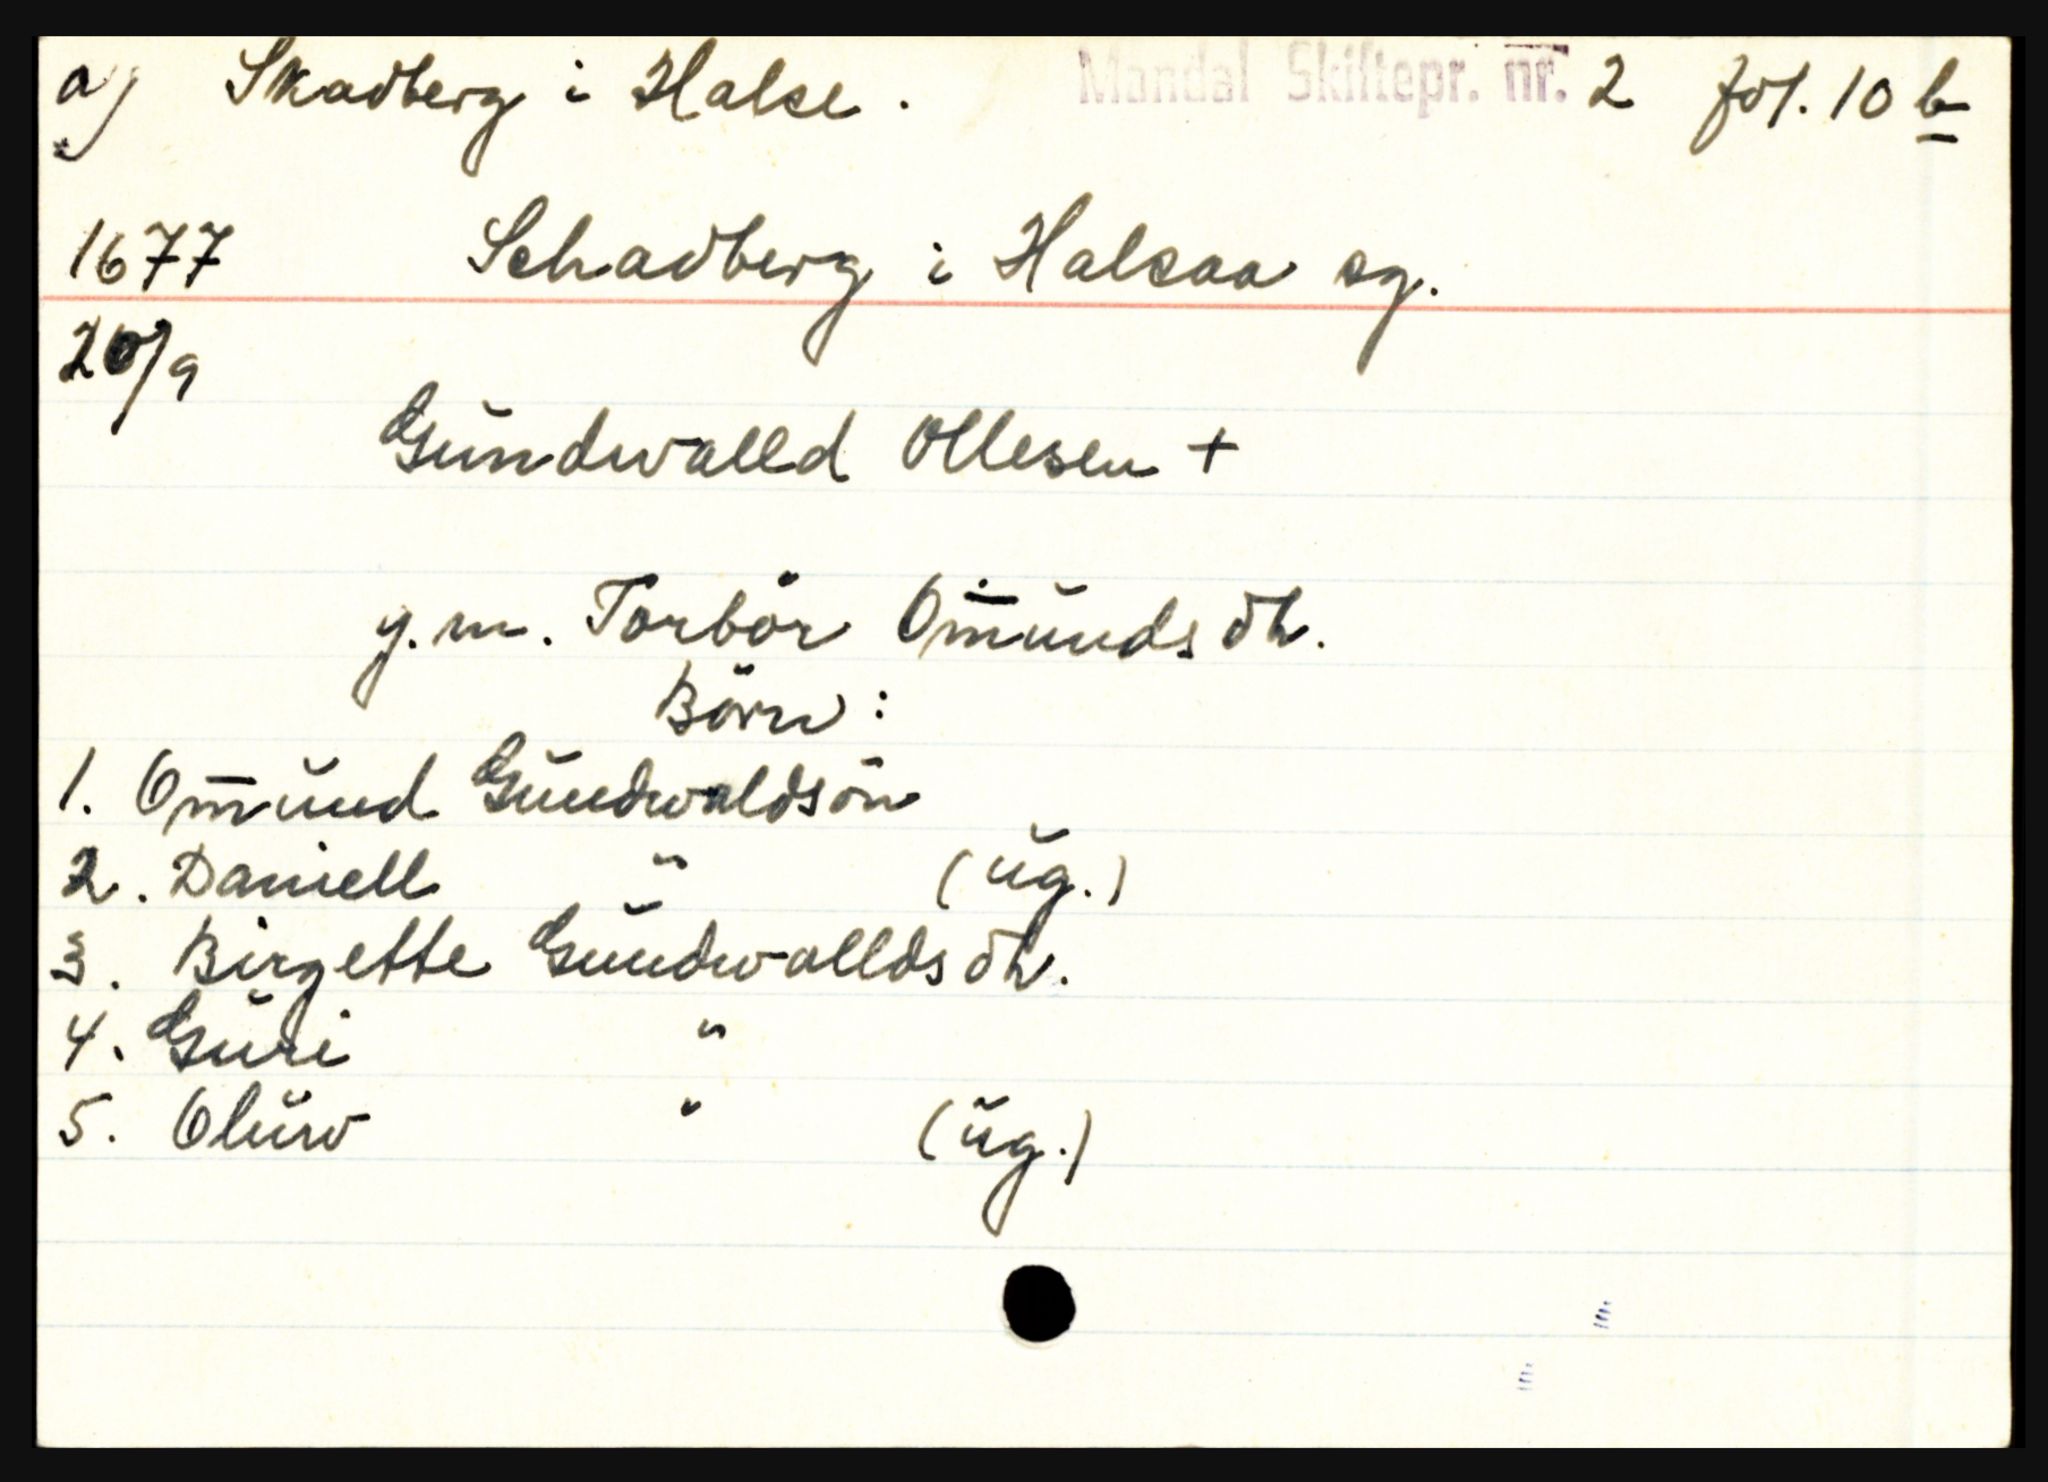 a) Skadberg i Halse. Mandal Skiftepr. nr. 2 fol. 10 b
1677 Schadberg i Halsaa sg.
20/9
Gŭndwalld Ollesen +
g. m. Torbör Om̄ŭndsdtr.
Börn:
1. Om̄ŭnd Gŭndwaldsön
2. Daniell " (ŭg.)
3. Birgette Gŭndwalldsdtr.
4. Gŭri "
5. Olŭw " (ŭg.)